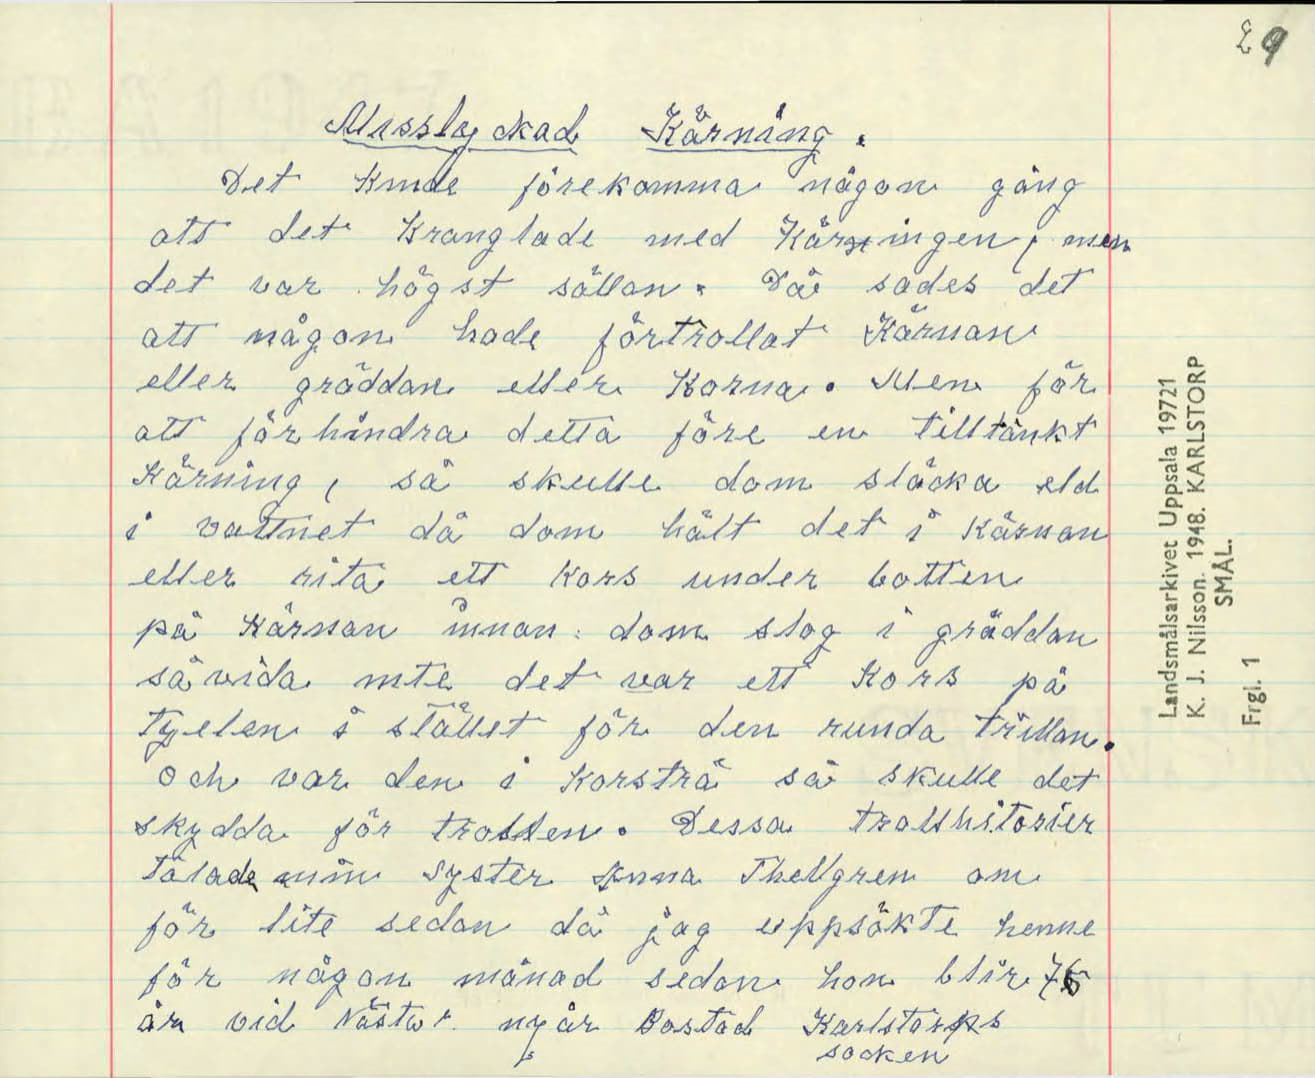 29
Misslyckad Kärning.
Det kunde förekomma någon gång
att det kranglade med Kärningen, men
det var högst sällan. Då sades det
att någon hade förtrollat Kärnan
eller gräddan eller Korna. Men för
att förhindra detta före en tilltänkt
Kärning, så skulle dom släcka eld
i vattnet då dom hält det i Kärnan
eller rita ett Kors under botten
på Kärnan innan dom slog i gräddan
såvida inte det var ett Kors på
tyelen i stället för den runda trillan.
och var den i Korsträ så skulle det
skydda för trollen. Dessa trollhistorier
talade min Syster Anna Thellgren om
för lite sedan då jag uppsökte henne
för någon månad sedan hon blir 75
år vid Nästa nyår Bostad Karlstorps
socken
Landsmålsarkivet Uppsala 19721
K. J. Nilsson. 1948. KARLSTORP
SMÅL.
Frgl. 1